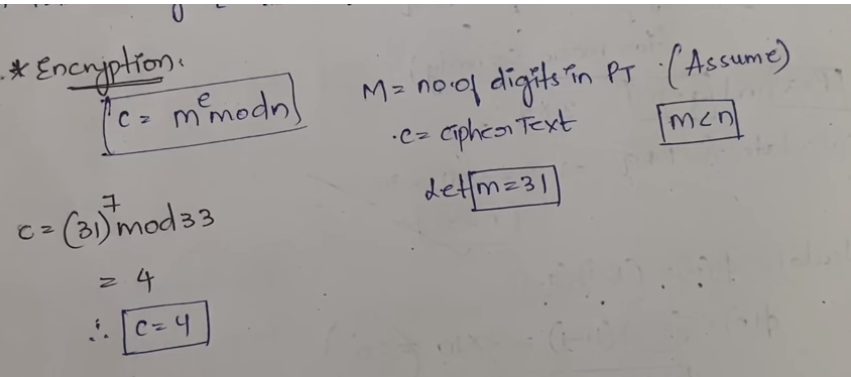 * Encryption:
c = m^e mod n
M = no. of digits in PT. (Assume)
c = cipher Text
m < n
let m = 31
c = (31)^7 mod 33
= 4
∴ c = 4